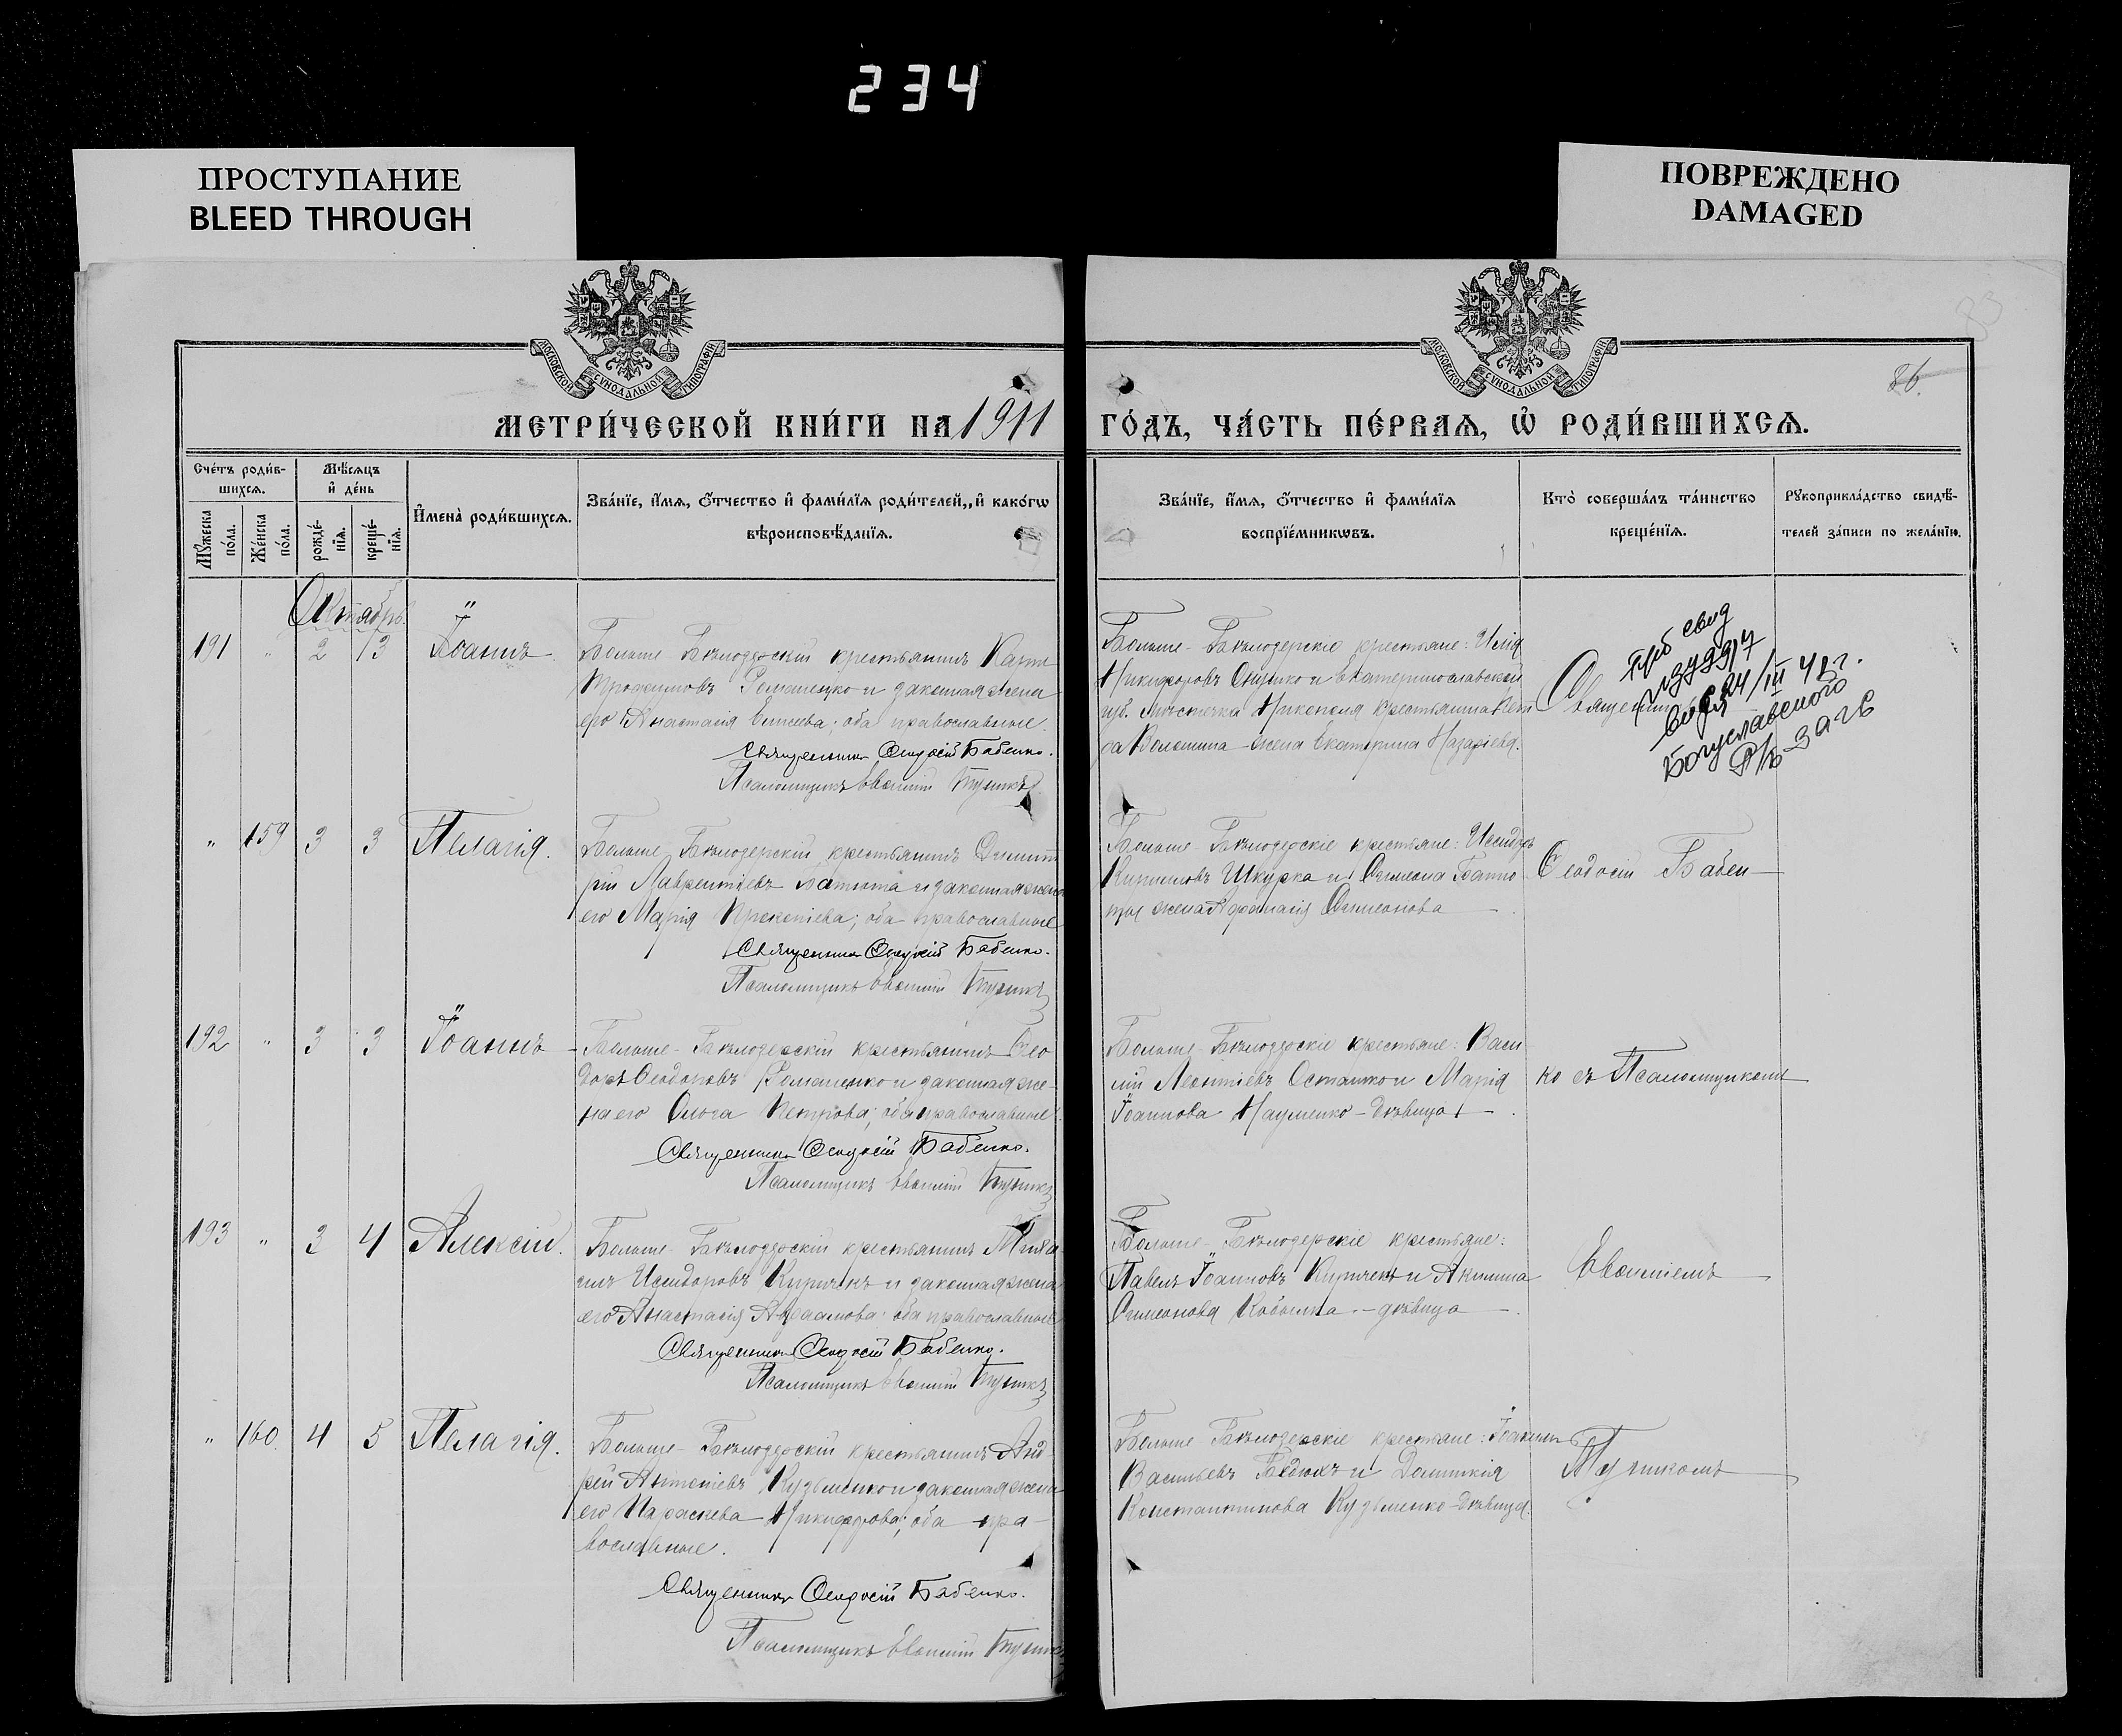 234
ПРОСТУПАНИЕ
BLEED THROUGH
ПОВРЕЖДЕНО
DAMAGED
МОСКОВСКОЙ СѴНОДАЛЬНОЙ ТИПОГРАФІИ
МОСКОВСКОЙ СѴНОДАЛЬНОЙ ТИПОГРАФІИ
86.
МЕТРИ́ЧЕСКОЙ КНИ́ГИ НА 1911
ГО́ДЪ, ЧА́СТЬ ПЕ́РВАѦ, Ѡ҆ РОДИ́ВШИХСѦ.
Сче́тъ роди́в-
шихсѧ.
Мѣ́сѧцъ
и҆ де́нь
Мꙋ́жеска
по́ла.
Же́нска
по́ла.
рожде́-
нїѧ.
креще́-
нїѧ.
И҆мена̀ роди́вшихсѧ.
Зва́нїе, и҆́мѧ, ѻ҆́тчество и҆ фами́лїѧ роди́телей, и҆ како́гѡ
вѣроисповѣ́данїѧ.
Зва́нїе, и҆́мѧ, ѻ҆́тчество и҆ фами́лїѧ
воспрїе́мникѡвъ.
Кто̀ соверша́лъ та́инство
креще́нїѧ.
Рꙋкоприкла́дство свидѣ́-
телей за́писи по жела́нїю.
Октябрь.
191 " 2 3 Іоаннъ
Больше Бѣлозерскій крестьянинъ
Трофимовъ Романенко и законная жена
его Анастасія Елисеева; оба православные.
Священникъ Ѳеодосій Бабенко.
Псаломщикъ Евѳимій
Больше-Бѣлозерскіе крестьяне: Илія
Никифоровъ и Екатеринославской
губ. мѣстечка Никополя крестьянина Пет
ра Волошина жена Екатерина Назаріева.
Священникъ
свид
Богуславского
Р/Б ЗАГС
" 159 3 3 Пелагія.
Больше Бѣлозерскій крестьянинъ Димит
рій Лаврентіевъ и законная жена
его Марія Прокопіева; оба православные
Священникъ Ѳеодосій Бабенко.
Псаломщикъ Евѳимій
Больше-Бѣлозерскіе крестьяне: Исидоръ
Кирилловъ Шкурка и Симеона
жена Афанасія Симеонова
Ѳеодосій Бабен-
192 " 3 3 Іоаннъ
Больше-Бѣлозерскій крестьянинъ Ѳео
доръ Ѳеодоровъ Романенко и законная же-
на его Ольга Петрова; оба православные.
Священникъ Ѳеодосій Бабенко.
Псаломщикъ Евѳимій
Больше-Бѣлозерскіе крестьяне: Васи
лій Леонтіевъ Осташко и Марія
Іоаннова Науменко-дѣвица.
ко съ Псаломщикомъ
193 " 3 4 Алексій.
Больше-Бѣлозерскій крестьянинъ Миха
илъ Исидоровъ Киричекъ и законная жена
его Анастасія Авраамова; оба православные
Священникъ Ѳеодосій Бабенко.
Псаломщикъ Евѳимій
Больше-Бѣлозерскіе крестьяне:
Павелъ Іоанновъ Киричекъ и Акилина
Симеонова - дѣвица
Евѳиміемъ
" 160. 4 5 Пелагія.
Больше-Бѣлозерскій крестьянинъ Анд
рей Антоніевъ Кузьменко и законная жена
его Параскева Никифорова; оба пра-
вославные.
Священникъ Ѳеодосій Бабенко.
Псаломщикъ Евѳимій
Больше Бѣлозерскіе крестьяне: Іоакимъ
Васильевъ и Домникія
Константинова Кузьменко-дѣвица.